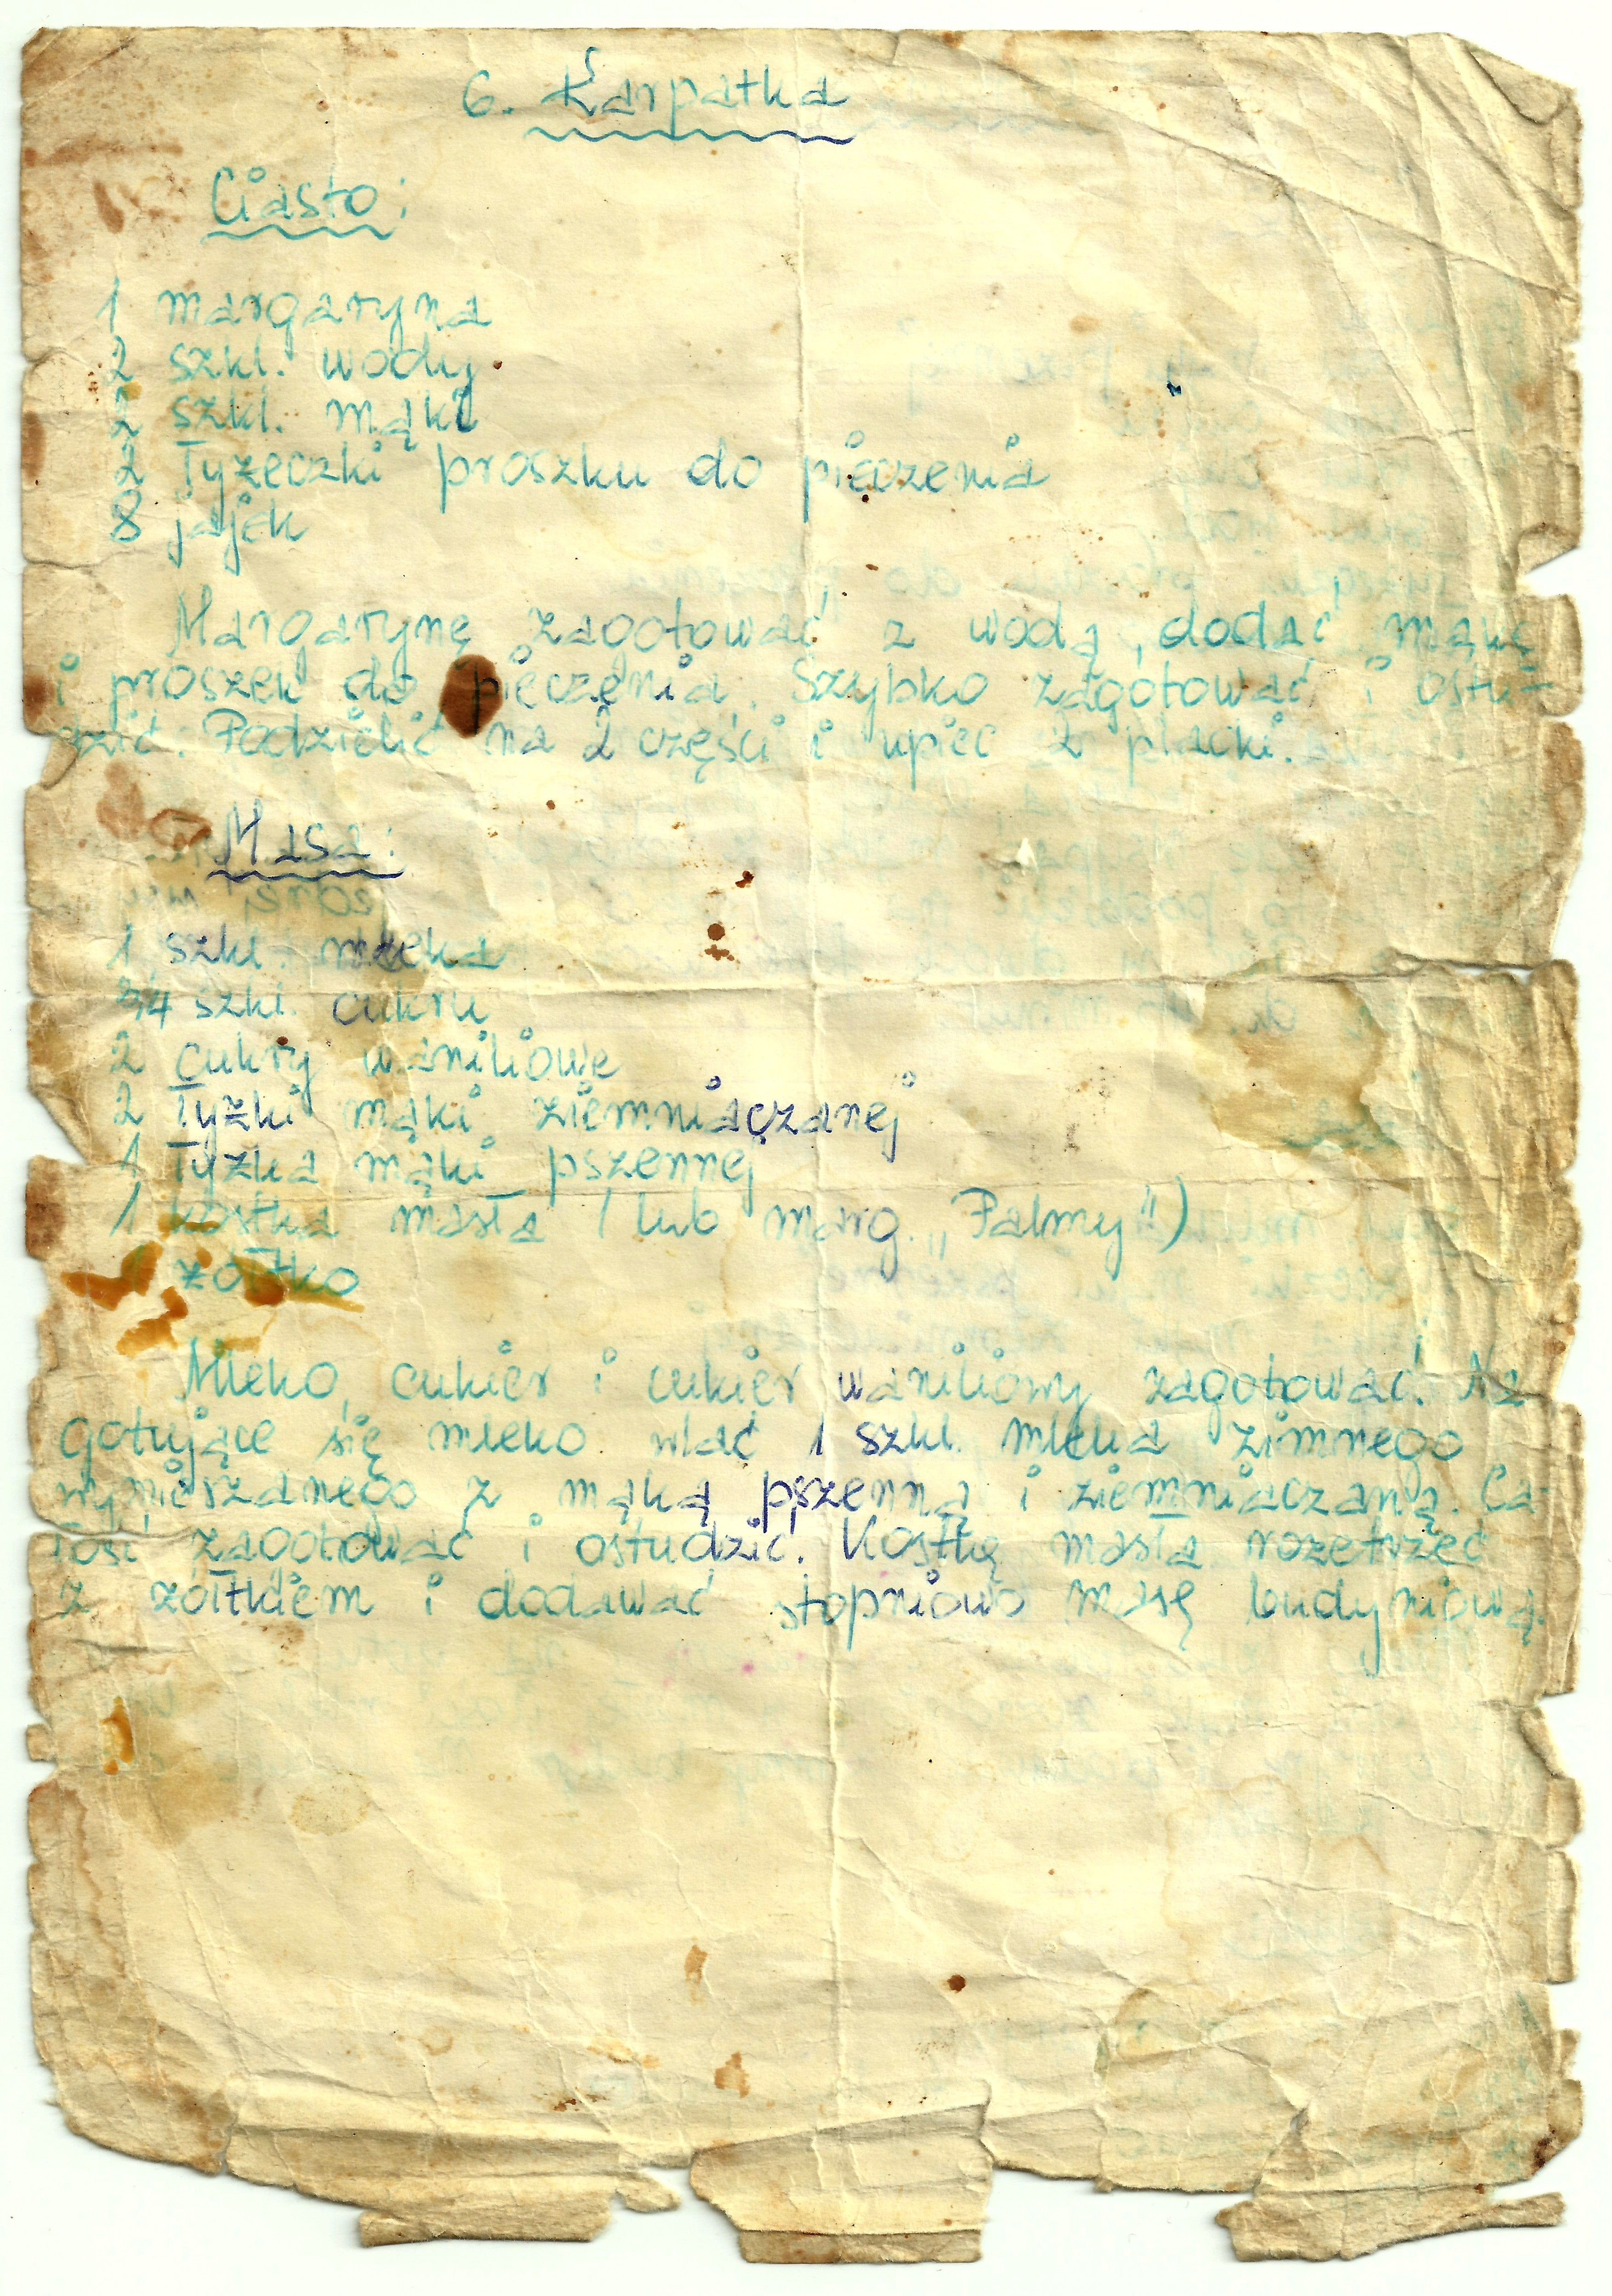 6. Karpatka
Ciasto:
1 margaryna
2 szkl. wody
2 szkl. mąki
2 łyżeczki proszku do pieczenia
8 jajek
Margarynę zagotować z wodą, dodać mąkę
i proszek do pieczenia. Szybko zagotować i ostu-
dzić. Podzielić na 2 części i upiec 2 placki.
Masa:
1 szkl. mleka
3/4 szkl. cukru
2 cukry waniliowe
2 łyżki mąki ziemniaczanej
1 łyżka mąki pszennej
1 kostka masła / lub marg. „Palmy")
żółtko
Mleko, cukier i cukier waniliowy zagotować. Na
gotujące się mleko wlać 1 szkl. mleka zimnego
wymieszanego z mąką pszenną i ziemniaczaną. Ca-
łość zagotować i ostudzić. Kostkę masła rozetrzeć
z żółtkiem i dodawać stopniowo masę budyniową.